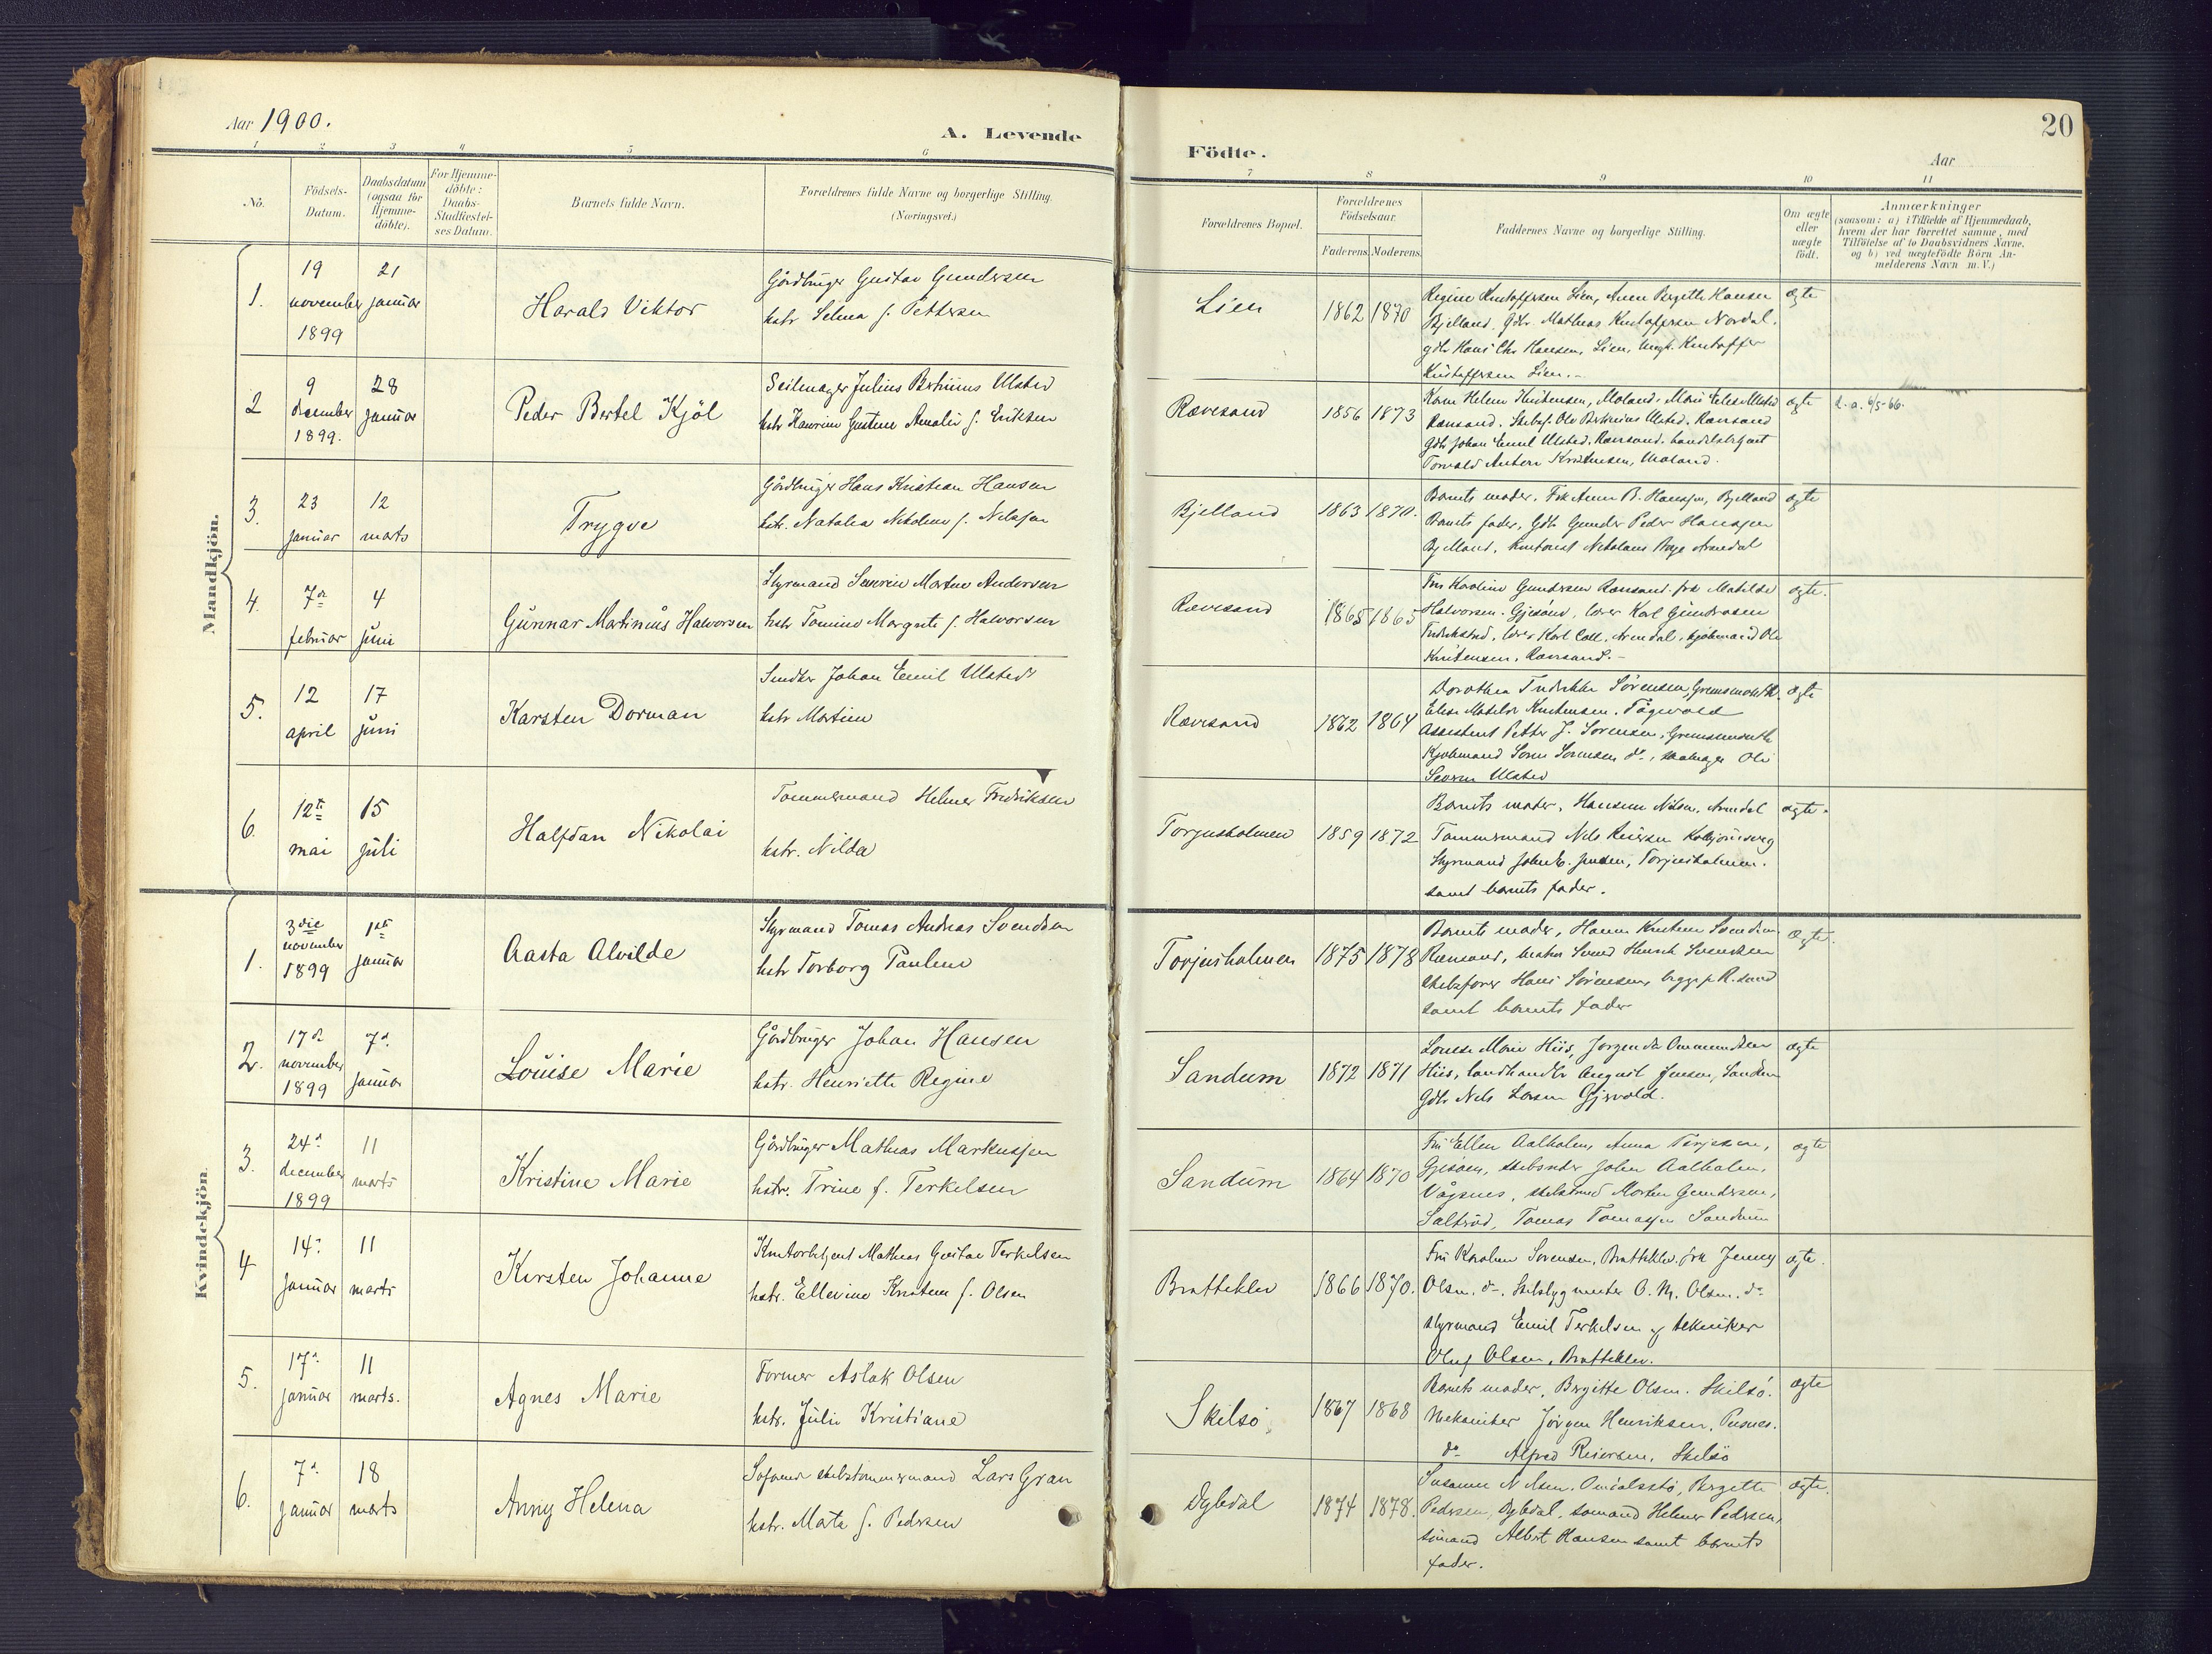 Aar 1900.
A. Levende
Födte.
Aar
20
1 2 3 4 5 6 7 8 9 10 11
No.
Födsels-
Datum.
Daabsdatum
(ogsaa for
Hjemme-
döbte).
For Hjemme-
döbte:
Daabs-
Stadfæstel-
ses Datum.
Barnets fulde Navn.
Forældrenes fulde Navne og borgerlige Stilling.
(Næringsvei.)
Forældrenes Bopæl.
Forældrenes
Födselsaar.
Faderens. Moderens.
Faddernes Navne og borgerlige Stilling.
Om ægte
eller
uægte
födt.
Anmærkninger
(saasom: a) i Tilfælde af Hjemmedaab,
hvem der har forrettet samme, med
Tilföielse af to Daabsvidners Navne,
og b) ved uægtefödte Börn An-
melderens Navn m. V.)
Mandkjön.
1.
19
november
1899
21
januar
Harald Viktor
Gårdbruger Gustav Gundersen
hstr Selma f. Pettersen
Lien
1862 1870
Regine Kristoffersen Lien, Anne Birgitte Hansen
Bjelland. Gdbr. Mathias Kristoffersen Nordal.
gdbr Hans Chr Hansen, Lien, Ungk. Kristoffer
Kristoffersen Lien.-
ægte
2
9
december
1899.
28
januar
Peder Bertel Kjöl
Seilmager Julius Bertinius Ulsted
hstr Gustine Amalie f. Eriksen
Rævesand
1856 1873
Karen Helene Kristensen, Moland. Marie Elise Ulsted
Rævesand. Skibsf. Ole Bertinius Ulsted. Rævesand
Gdbr Johan Emil Ulsted. Rævesand. handelsbetjent
Torvald Anton Kristensen, Moland.
ægte
d. a. 6/5-66.
3.
23
januar
12
marts
Trygve
Gårdbruger Hans Kristian Hansen
hstr. Natalia Nikoline f. Nilsen
Bjelland
1863 1870.
Barnets moder. Frk Anne B. Hansen, Bjelland
Barnets fader, Gdbr Gunder Peder Hansen
Bjelland, Kontorist Nikolaus Arendal
ægte
4.
7de
februar
4
juni
Gunnar Martinius Halvorsen
Styrmand Severin Martin Andersen
hstr Tomine Margrete f. Halvorsen
Rævesand
1865 1865
Fru Karoline Gundersen Rævesand. frk Matilde
Halvorsen. Gjesöen, lærer Karl Gundersen
Fredrikstad, lærer Karl Arendal, kjöbmand Ole
Kristensen, Rævesand.-
ægte.
5.
12
april
17
juni
Karsten Dorman
Smedker Johan Emil Ulsted
hstr Martine
Rævesand
1862 1864
Dorothea Fredrikke Sörensen,
Elise Matilde Kristensen.
Assistent Petter J. Sörensen,
Kjöbmand Sörensen do.,
Severin Ulsted
ægte
6.
12te
mai
15
juli
Halfdan Nikolai
Tömmermand Helmer Fredriksen
hstr. Nilda
Torjusholmen
1859 1872
Barnets moder, Nilsen, Arendal
Tömmermand Nils Reiersen
Styrmand John E. Jensen, Torjusholmen.
samt barnets fader.
ægte.
Kvindekjön.
1.
3die
november
1899
1ste
januar
Aasta Alvilde
Styrmand Tomas Andreas Svendsen
hstr Torborg Pauline
Torjusholmen
1875 1878
Barnets moder, Kristine Svendsen
Rævesand, Svend Henrik Svendsen
skibsförer Hans Sörensen, begge p R.sand
samt barnets fader
Ægte.
2.
17de
november
1899
7d.
januar
Louise Marie
Gårdbruger Johan Hansen
hstr. Henriette Regine
Sandum
1872 1871
Louise Marie Hiis, Ommundsen
Hiis, landhandler August Jensen, Sandum
Gdbr Nils Larsen Gjervold.
ægte
3.
24d
december
1899
11
marts
Kristine Marie
Gårdbruger Mathias Markussen
hstr. Trine f. Terkelsen
Sandum
1864 1870
Fru Ellen Aalholm, Anna Terjesen,
Gjesöen, skibsreder Johan Aalholm,
Vågsnes, Morten Gundersen,
Saltröd, Tomas Tomassen Sandum
ægte
4
14d
januar
11
marts
Kirsten Johanne
Kontorbetjent Mathias Gustav Terkelsen
hstr. Ellevine Kristine f. Olsen
Bratteklev
1866 1870.
Fru Karoline Sörensen, Bratteklev. frk Jenny
Olsen. do. Skibsbygmester O. M. Olsen. do
Styrmand Emil Terkelsen og tekniker
Oluf Olsen, Bratteklev.
ægte.
5.
17d
januar
11
marts.
Agnes Marie
Former Aslak Olsen
hstr. Julie Kristiane
Skilsö
1867 1868
Barnets moder, Birgitte Olsen. Skilsö.
Mekaniker Jörgen Henriksen. Pusnes.
do Alfred Reiersen, Skilsö
ægte
6.
7d
januar
18
marts
Anny Helena
skibstömmermand Lars Gran
hstr. Marta f. Pedersen
Dybdal
1874 1878.
Susanne Nilsen. Birgitte
Pedersen, Dybdal, sömand Helmer Pedersen,
sömand Albert Hansen samt barnets
fader.
ægte.